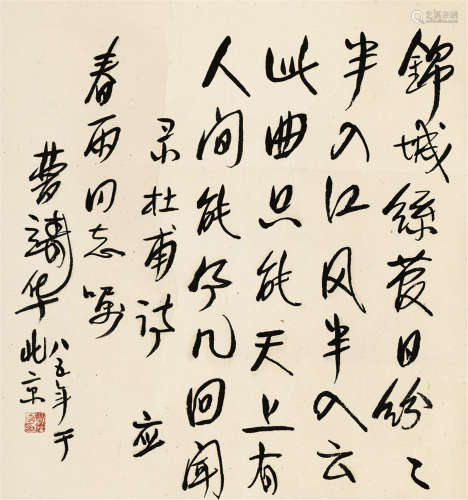 錦城絲管日紛〻
半入江风半入云
此曲只能天上有
人间能得几回闻
录杜甫诗 应
春雨同志嘱
曹靖华
八五年于
北京